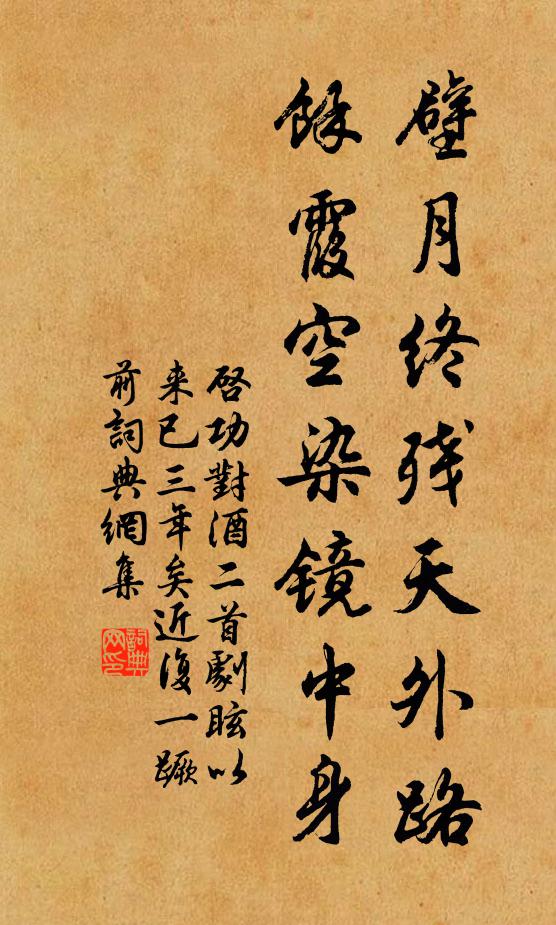 壁月终残天外路
餘霞空染镜中身
启功對酒二首劇眩以
来已三年矣近復一蹶
前詞典網集
詞典网印